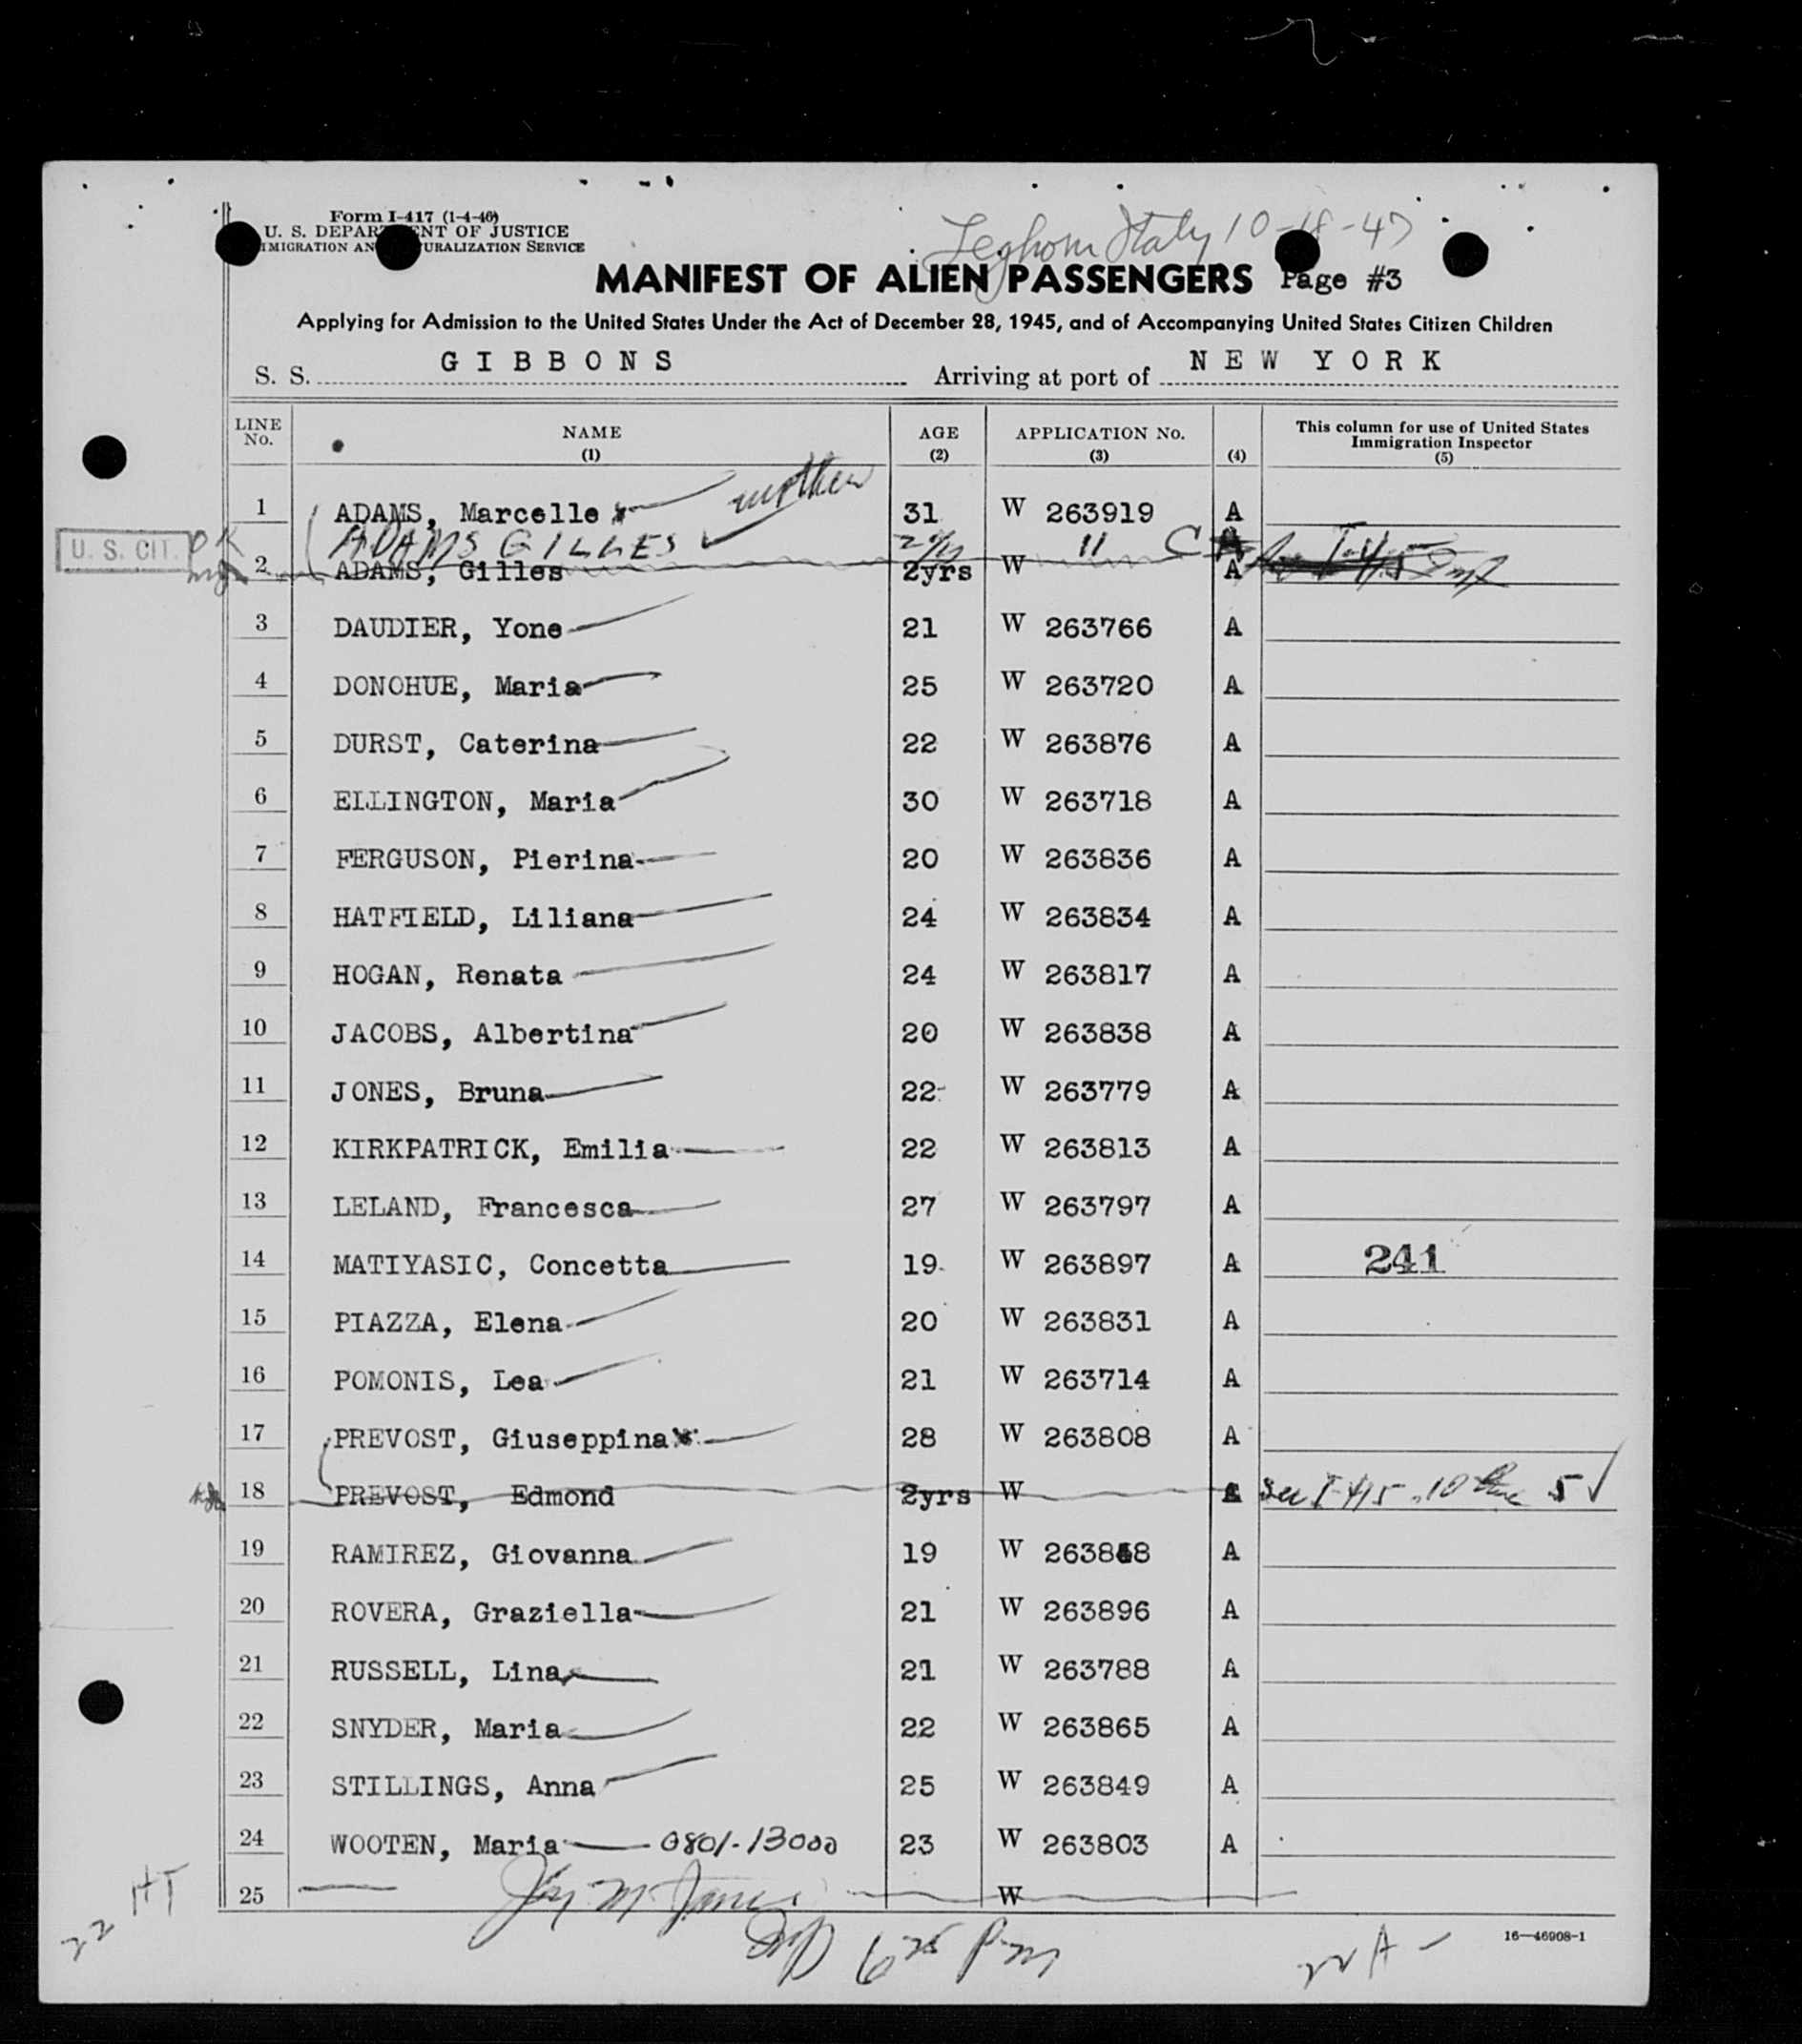 Form I-417 (1-4-46)
U. S. DEPAR ENT OF JUSTICE
IMIGRATION AN URALIZATION SERVICE
Leghorn Italy 10-18-47
MANIFEST OF ALIEN PASSENGERS Page #3
Applying for Admission to the United States Under the Act of December 28, 1945, and of Accompanying United States Citizen Children
S. S. GIBBONS Arriving at port of NEW YORK
LINE No. NAME (1) AGE (2) APPLICATION No. (3) (4) This column for use of United States Immigration Inspector (5)
mother
1 ADAMS, Marcelle 31 W 263919 A
U. S. CIT. OK ADAMS GILLES 11 C
2 ADAMS, Gilles 2yrs W A
3 DAUDIER, Yone 21 W 263766 A
4 DONOHUE, Maria 25 W 263720 A
5 DURST, Caterina 22 W 263876 A
6 ELLINGTON, Maria 30 W 263718 A
7 FERGUSON, Pierina 20 W 263836 A
8 HATFIELD, Liliana 24 W 263834 A
9 HOGAN, Renata 24 W 263817 A
10 JACOBS, Albertina 20 W 263838 A
11 JONES, Bruna 22 W 263779 A
12 KIRKPATRICK, Emilia 22 W 263813 A
13 LELAND, Francesca 27 W 263797 A
14 MATIYASIC, Concetta 19 W 263897 A 241
15 PIAZZA, Elena 20 W 263831 A
16 POMONIS, Lea 21 W 263714 A
17 PREVOST, Giuseppina 28 W 263808 A
18 PREVOST, Edmond 2yrs W A See I-415 10 line 5
19 RAMIREZ, Giovanna 19 W A
20 ROVERA, Graziella 21 W 263896 A
21 RUSSELL, Lina 21 W 263788 A
22 SNYDER, Maria 22 W 263865 A
23 STILLINGS, Anna 25 W 263849 A
24 WOOTEN, Maria 0801-13000 23 W 263803 A
25 W
HT
22
6 25 pm
22 A
16—46908-1